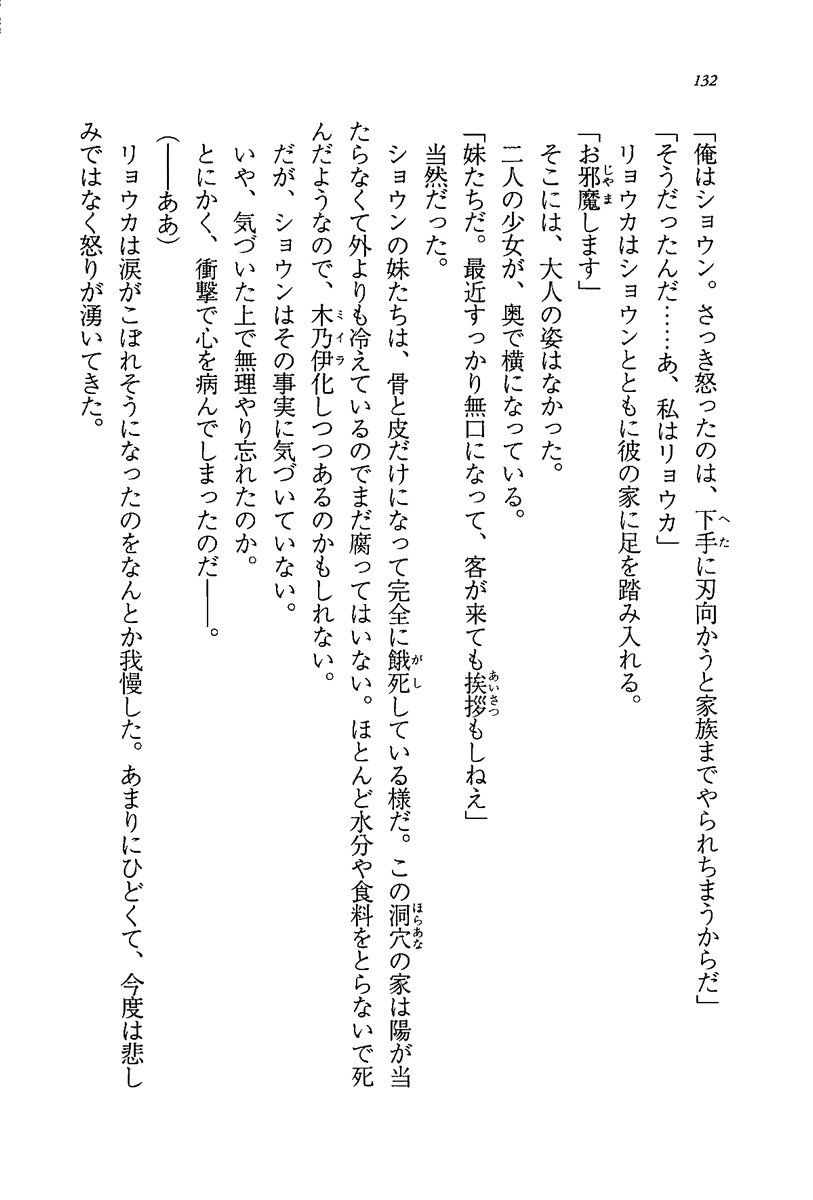 132
「俺はショウン。さっき怒ったのは、下手に刃向かうと家族までやられちまうからだ」
「そうだったんだ……あ、私はリョウカ」
リョウカはショウンとともに彼の家に足を踏み入れる。
「お邪魔します」
そこには、大人の姿はなかった。
二人の少女が、奥で横になっている。
「妹たちだ。最近すっかり無口になって、客が来ても挨拶もしねえ」
当然だった。
ショウンの妹たちは、骨と皮だけになって完全に餓死している様だ。この洞穴の家は陽が当
たらなくて外よりも冷えているのでまだ腐ってはいない。ほとんど水分や食料をとらないで死
んだようなので、木乃伊化しつつあるのかもしれない。
だが、ショウンはその事実に気づいていない。
いや、気づいた上で無理やり忘れたのか。
とにかく、衝撃で心を病んでしまったのだ――。
(――ああ)
リョウカは涙がこぼれそうになったのをなんとか我慢した。あまりにひどくて、今度は悲し
みではなく怒りが湧いてきた。